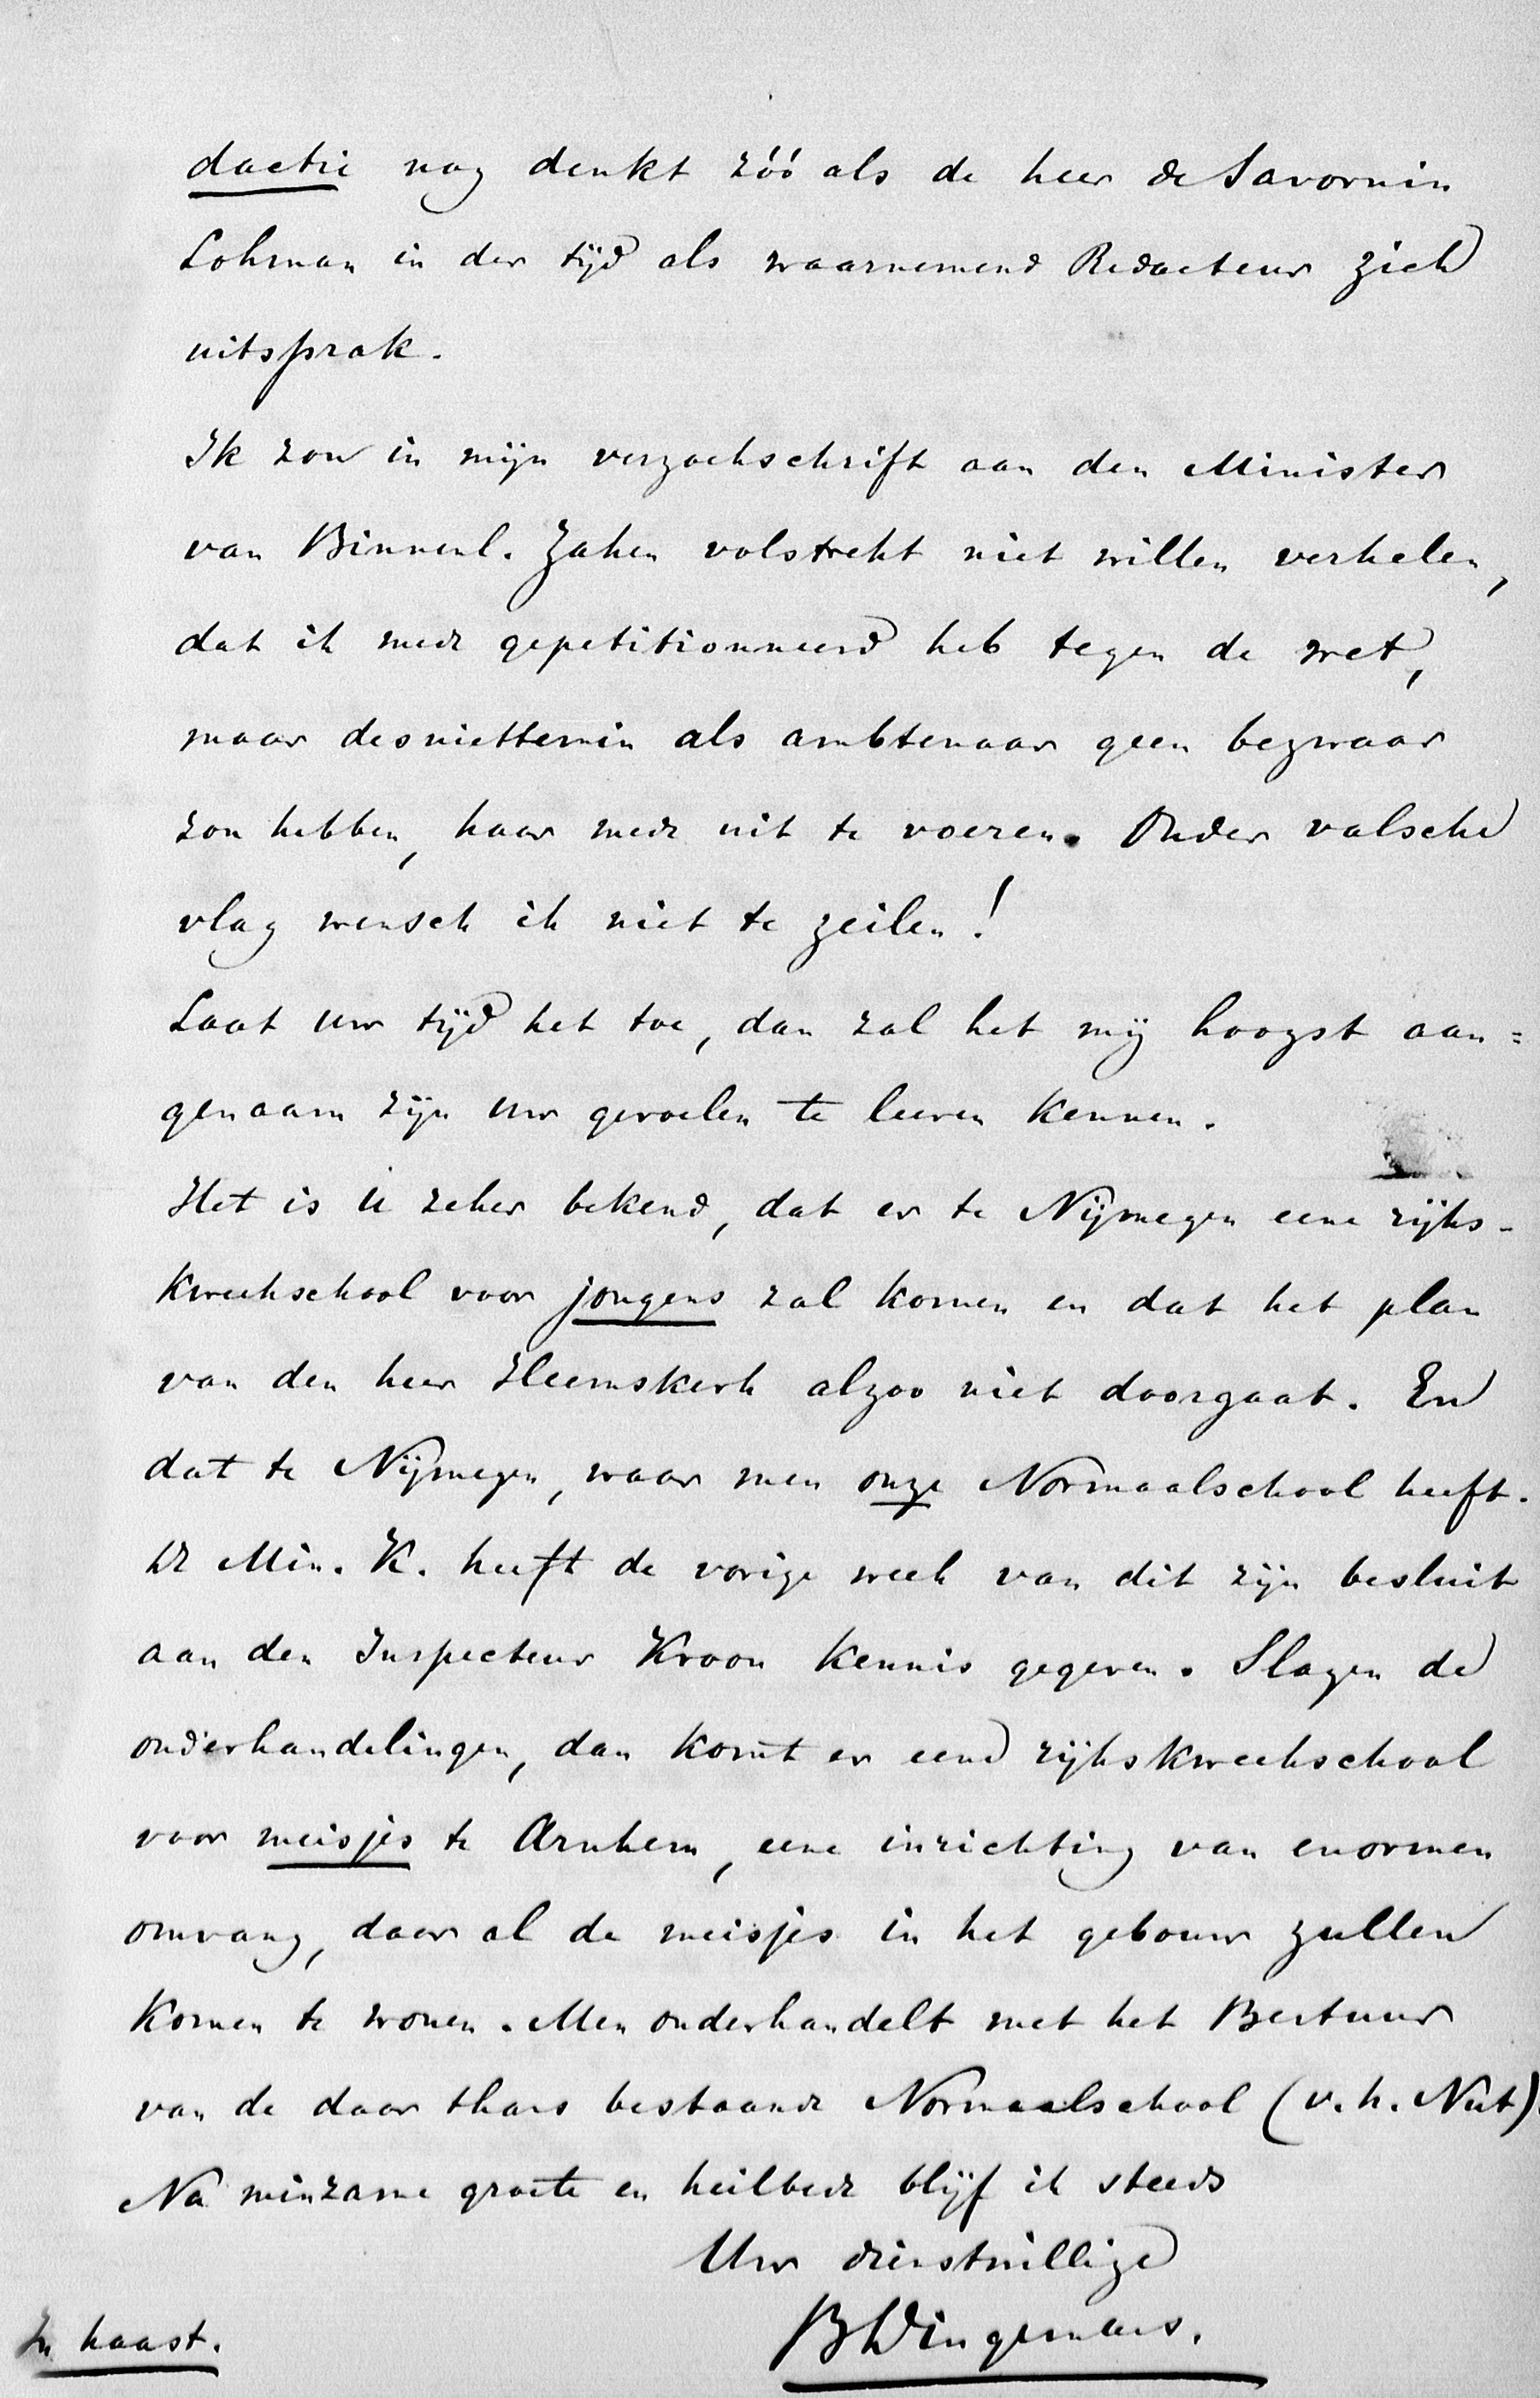 dactie nog denkt zóó als de heer de Savornin
Lohman in der tijd als waarnemend Redacteur zich
uitsprak.
Ik zou in mijn verzoekschrift aan den Minister
van Binnenl. Zaken volstrekt niet willen verhelen,
dat ik mede gepetitionneerd heb tegen de wet,
maar desniettemin als ambtenaar geen bezwaar
zou hebben, haar mede uit te voeren. Onder valsche
vlag wensch ik niet te zeilen!
Laat Uw tijd het toe, dan zal het mij hoogst aan=
genaam zijn Uw gevoelen te leeren kennen.
Het is U zeker bekend, dat er te Nijmegen eene rijks-
kweekschool voor jongens zal komen en dat het plan
van den heer Heemskerk alzoo niet doorgaat. En
dat te Nijmegen, waar men onze Normaalschool heeft.
De Min. K. heeft de vorige week van dit zijn besluit
aan den Inspecteur Kroon kennis gegeven. Slagen de
onderhandelingen, dan komt er eene rijkskweekschool
voor meisjes te Arnhem, eene inrichting van enormen
omvang, daar al de meisjes in het gebouw zullen
komen te wonen. Men onderhandelt met het Bestuur
van de daar thans bestaande Normaalschool (v. h. Nut).
Na minzame groete en heilbede blijf ik steeds
Uw dienstwillige
BWingemans.
In haast.